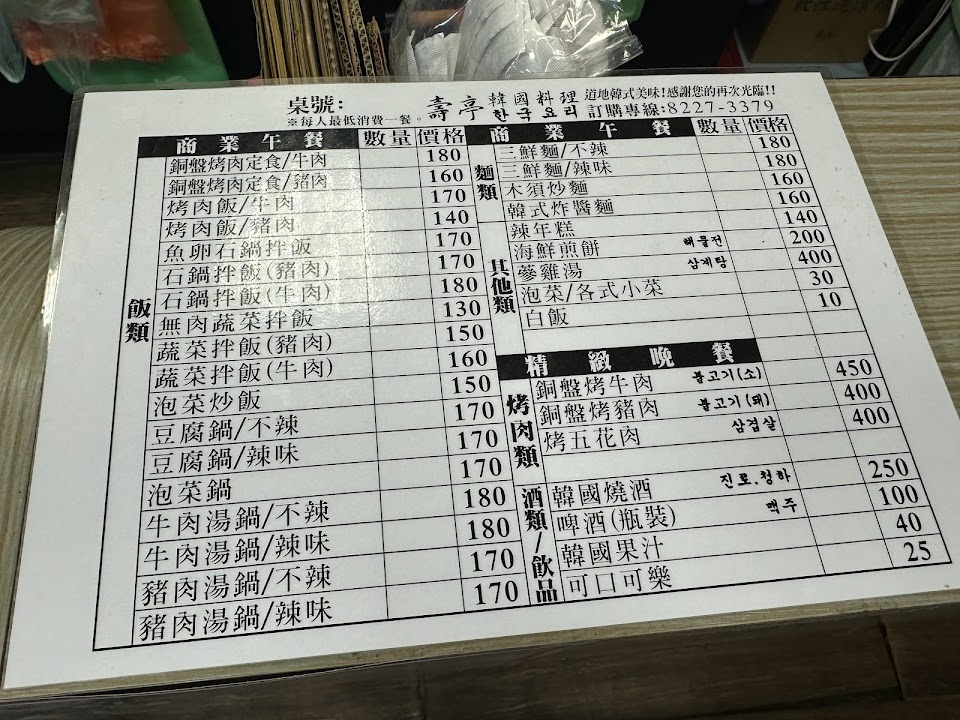 桌號:
※每人最低消費一餐。
壽亭 韓國料理 한국요리
道地韓式美味!感謝您的再次光臨!!
訂購專線:8227-3379
商業午餐 數量 價格
飯類
銅盤烤肉定食/牛肉 180
銅盤烤肉定食/豬肉 160
烤肉飯/牛肉 170
烤肉飯/豬肉 140
魚卵石鍋拌飯 170
石鍋拌飯(豬肉) 170
石鍋拌飯(牛肉) 180
無肉蔬菜拌飯 130
蔬菜拌飯(豬肉) 150
蔬菜拌飯(牛肉) 160
泡菜炒飯 150
豆腐鍋/不辣 170
豆腐鍋/辣味 170
泡菜鍋 170
牛肉湯鍋/不辣 180
牛肉湯鍋/辣味 180
豬肉湯鍋/不辣 170
豬肉湯鍋/辣味 170
商業午餐 數量 價格
麵類
三鮮麵/不辣 180
三鮮麵/辣味 180
木須炒麵 160
韓式炸醬麵 160
其他類
辣年糕 140
海鮮煎餅 해물전 200
蔘雞湯 삼계탕 400
泡菜/各式小菜 30
白飯 10
精緻晚餐
烤肉類
銅盤烤牛肉 불고기(소) 450
銅盤烤豬肉 불고기(돼) 400
烤五花肉 삼겹살 400
酒類/飲品
韓國燒酒 진로.청하 250
啤酒(瓶裝) 맥주 100
韓國果汁 40
可口可樂 25